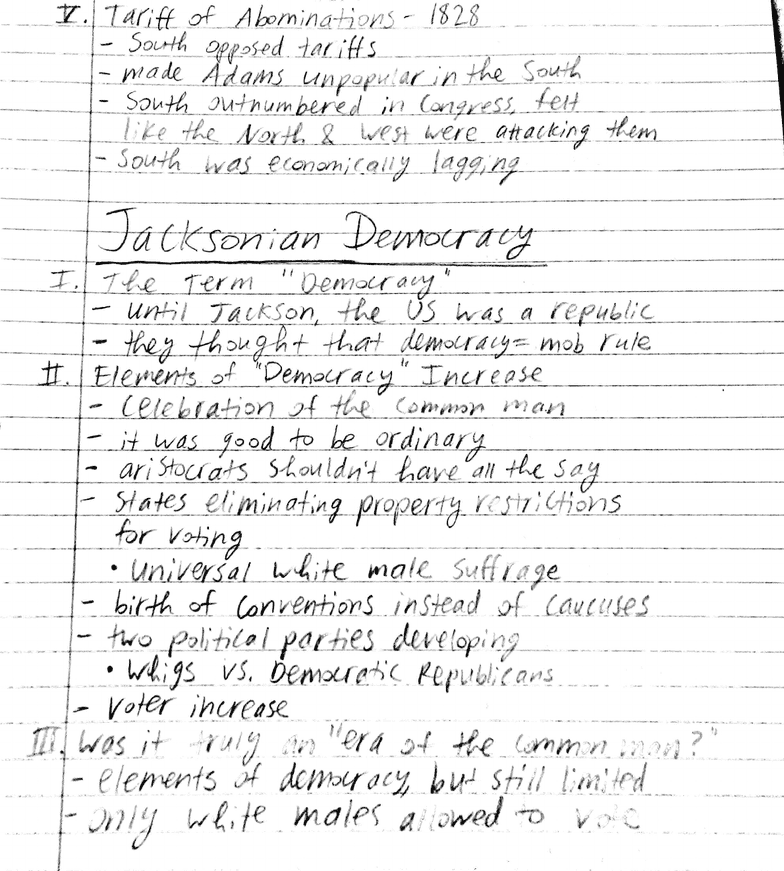 V. Tariff of Abominations - 1828
- South opposed tariffs
- made Adams unpopular in the South
- South outnumbered in Congress, felt
like the North & West were attacking them
- South was economically lagging
Jacksonian Democracy
I. The Term "Democracy"
- until Jackson, the US was a republic
- they thought that democracy = mob rule
II. Elements of "Democracy" Increase
- Celebration of the common man
- it was good to be ordinary
- aristocrats shouldn't have all the say
- States eliminating property restrictions
for voting
• Universal white male suffrage
- birth of conventions instead of caucuses
- two political parties developing
• Whigs vs. Democratic Republicans
- voter increase
III. Was it truly an "era of the common man?"
- elements of democracy, but still limited
- only white males allowed to vote